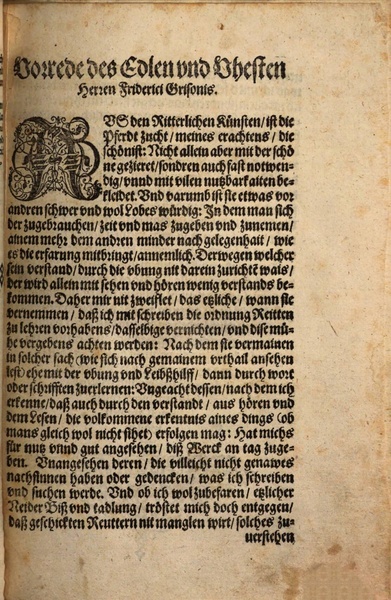 Vorrede des Edlen vnd Vhesten
Herren Friderici Grisonis.
AVS den Ritterlichen Künsten / ist die
Pferdt zucht / meines erachtens / die
schönist: Nicht allein aber mit der schö
ne gezieret / sondren auch fast notwen-
dig / vnnd mit vilen nutzbarkaiten be-
kleidet. Vnd varumb ist sie etwas vor
andren schwer vnd wol Lobes würdig: In dem man sich
der zugebrauchen / zeit vnd mas zugeben vnd zunemen /
ainem mehr dem andren minder nach gelegenhait / wie
es die erfarung mitbringt / annemlich. Derwegen welcher
sein verstand / durch die vbung nit darein zurichtē wais /
der wird allein mit sehen vnd hören wenig verstands be-
kommen. Daher mir nit zweiflet / das etzliche / wann sie
vernemmen / daß ich mit schreiben die ordnung Reitten
zu lehren vorhabens / dasselbige vernichten / vnd dise mü-
he vergebens achten werden: Nach dem sie vermainen
in solcher sach (wie sich nach gemainem vrthail ansehen
lest) ehe mit der vbung vnd Leibßhilff / dann durch wort
oder schrifften zuerlernen: Vngeacht dessen / nach dem ich
erkenne / daß auch durch den verstandt / aus hören vnd
dem Lesen / die volkommene erkentnis aines dings (ob
mans gleich wol nicht sihet) erfolgen mag: Hat michs
für nutz vnnd gut angesehen / diß Werck an tag zuge-
ben. Vnangesehen deren / die villeicht nicht genawes
nachsinnen haben oder gedencken / was ich schreiben
vnd suchen werde. Vnd ob ich wol zubefaren / etzlicher
Neider Biß vnd tadlung / tröstet mich doch entgegen /
daß geschickten Reuttern nit manglen wirt / solches zu-
uerstehen